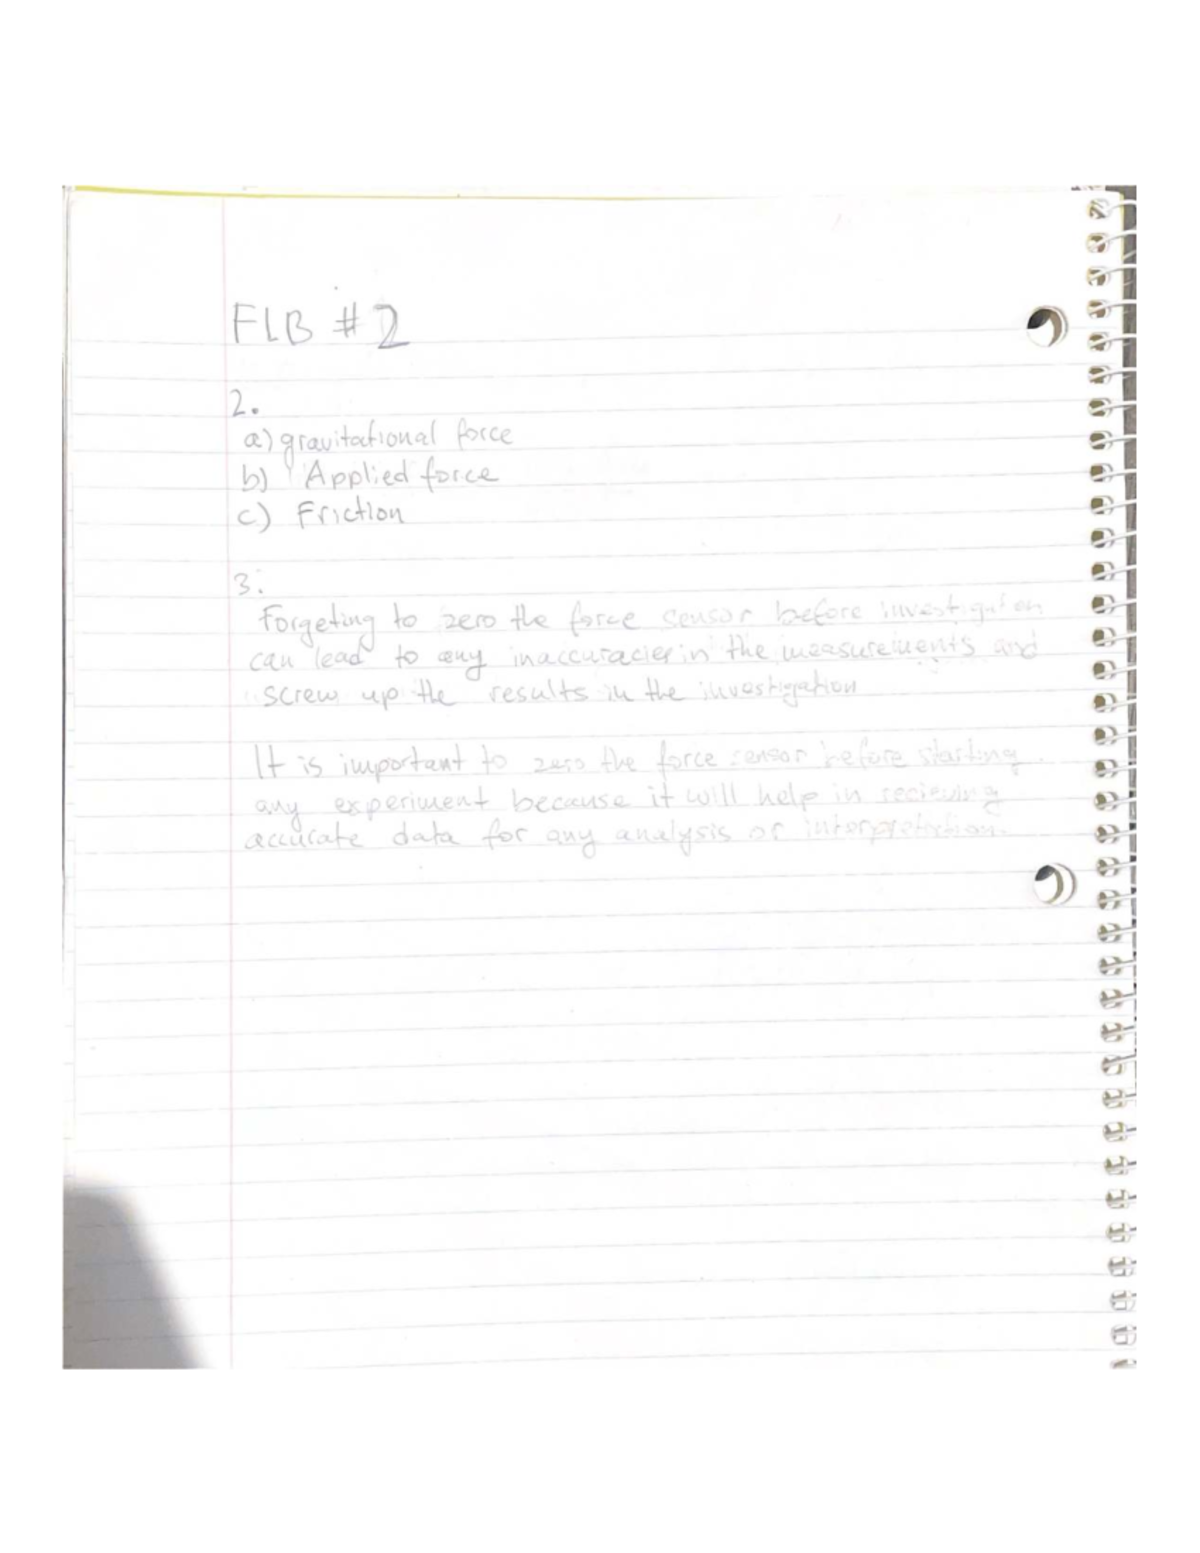 FLB #2
2.
a) gravitational force
b) Applied force
c) Friction
3.
Forgeting to zero the force sensor before investigation
can lead to any inaccuracies in the measurements and
screw up the results in the investigation
It is important to zero the force sensor before starting
any experiment because it will help in recieving
accurate data for any analysis or interpretation.